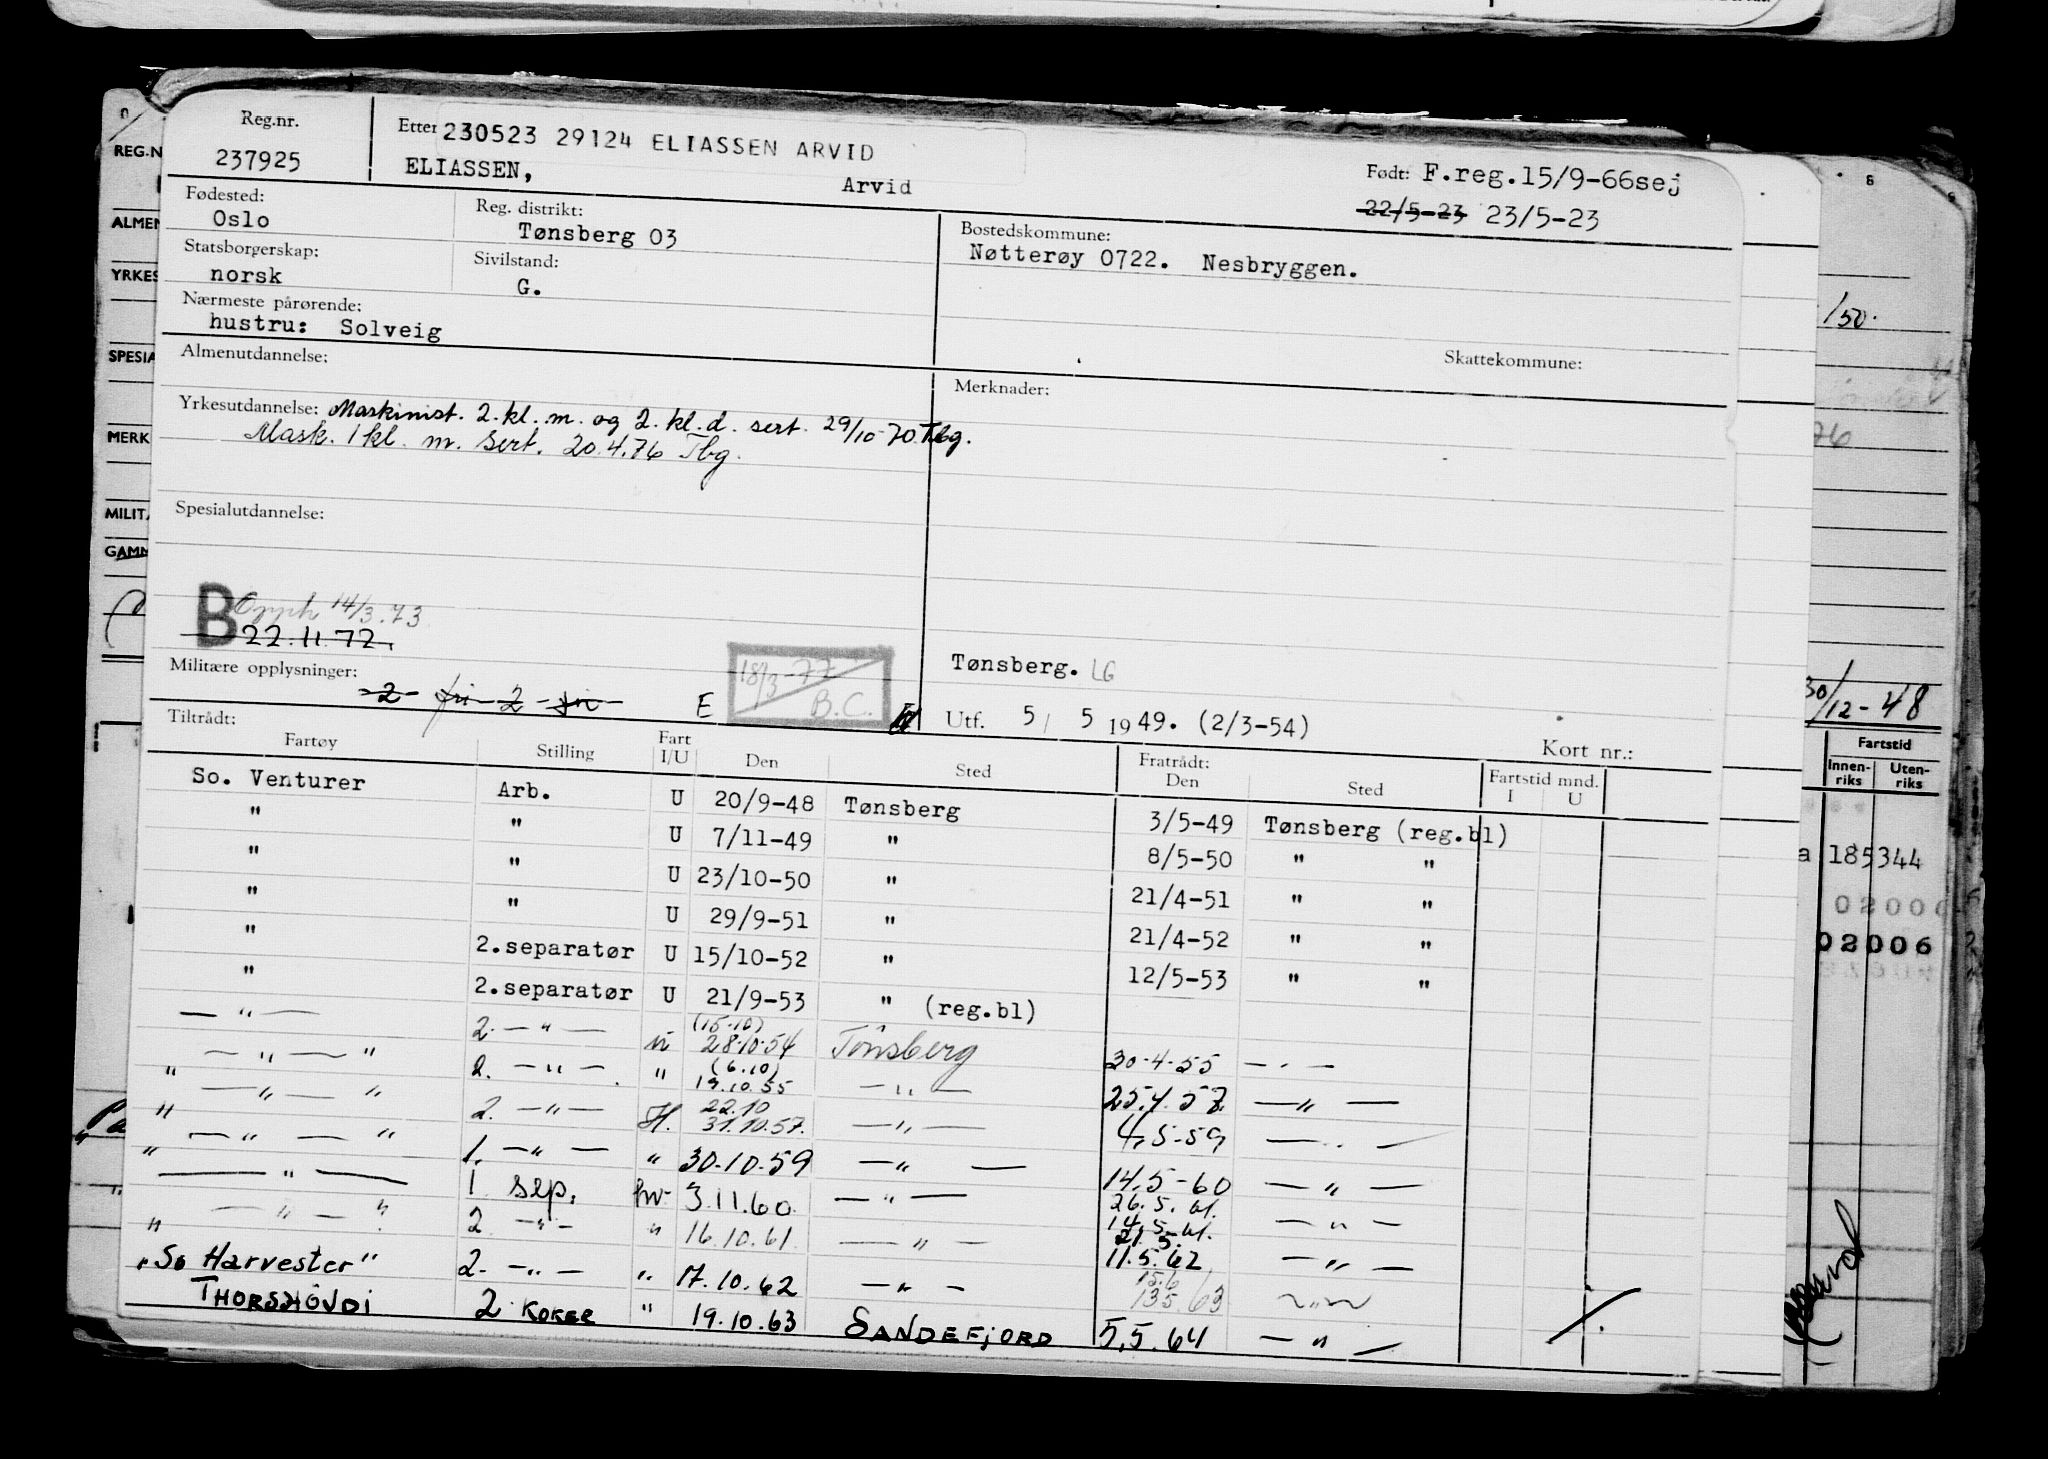 Reg.nr.
237925
Etter 230523 29124 ELIASSEN ARVID
ELIASSEN, Arvid
Født: F.reg.15/9-66sej
22/5-23 23/5-23
Fødested:
Oslo
Reg. distrikt:
Tønsberg 03
Bostedskommune:
Nøtterøy 0722. Nesbryggen.
Statsborgerskap:
norsk
Sivilstand:
G.
Nærmeste pårørende:
hustru: Solveig
Skattekommune:
Almenutdannelse:
Merknader:
Yrkesutdannelse: Maskinist. 2.kl.m. og 2.kl.d. sert. 29/10-70 Tbg.
Mask. 1 kl. m. Sert. 20.4.76 Tbg.
Spesialutdannelse:
B Opph 14/3.73
22.11.72.
Militære opplysninger:
2 fri 2 fri
E
18/3-77
B.C.
Tønsberg. LG
Utf. 5/ 5 1949. (2/3-54)
Kort nr.:
Tiltrådt:
Fartøy Stilling Fart I/U Den Sted Fratrådt: Den Sted Fartstid mnd. I U
So. Venturer Arb. U 20/9-48 Tønsberg 3/5-49 Tønsberg (reg.bl)
" " U 7/11-49 " 8/5-50 " "
" " U 23/10-50 " 21/4-51 " "
" " U 29/9-51 " 21/4-52 " "
" 2.separatør U 15/10-52 " 12/5-53 " "
" 2.separatør U 21/9-53 " (reg.bl)
— " — 2. — " — u (15.10) 28.10.54 Tønsberg 30-4-55 — " —
" — " — " 2. — " — " (6.10) 19.10.55 — " — 25.4.57. — " —
" — " — " 2. — " — H. 22.10 31.10.57. — " — 4.5-59 — " —
" — " — " 1. — " — " 30.10.59 — " — 14.5-60 — " —
— " — 1 sep. hv. 3.11.60. — " — 26.5.61. — " —
14.5.61.
" — " — " 2 — " — " 16.10.61. — " — 21.5.
11.5.62 — " —
"So Harvester" 2. — " — " 17.10.62 — " — 15.6
13.5.63 — " —
THORSHØVDI 2 KOKER " 19.10.63 SANDEFJORD 5.5.64 — " —
REG.N
ALMEN
YRKES
SPESIA
MERK
MILITÆ
GAMM
/50.
76
30/12-48
Fartstid
Innenriks Utenriks
a 185344
02006
02006